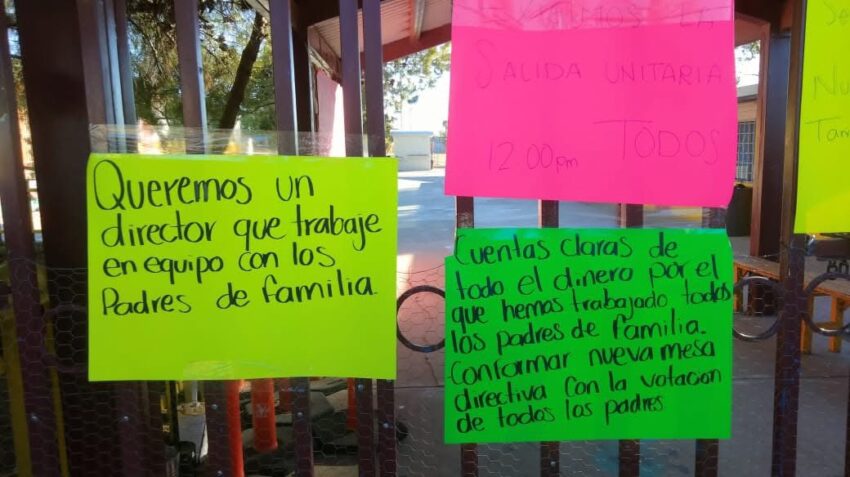 Queremos un
director que trabaje
en equipo con los
Padres de familia.
SALIDA UNITARIA
12:00pm TODOS
Cuentas claras de
todo el dinero por el
que hemos trabajado todos
los padres de familia.
Conformar nueva mesa
directiva con la votacion
de todos los padres.